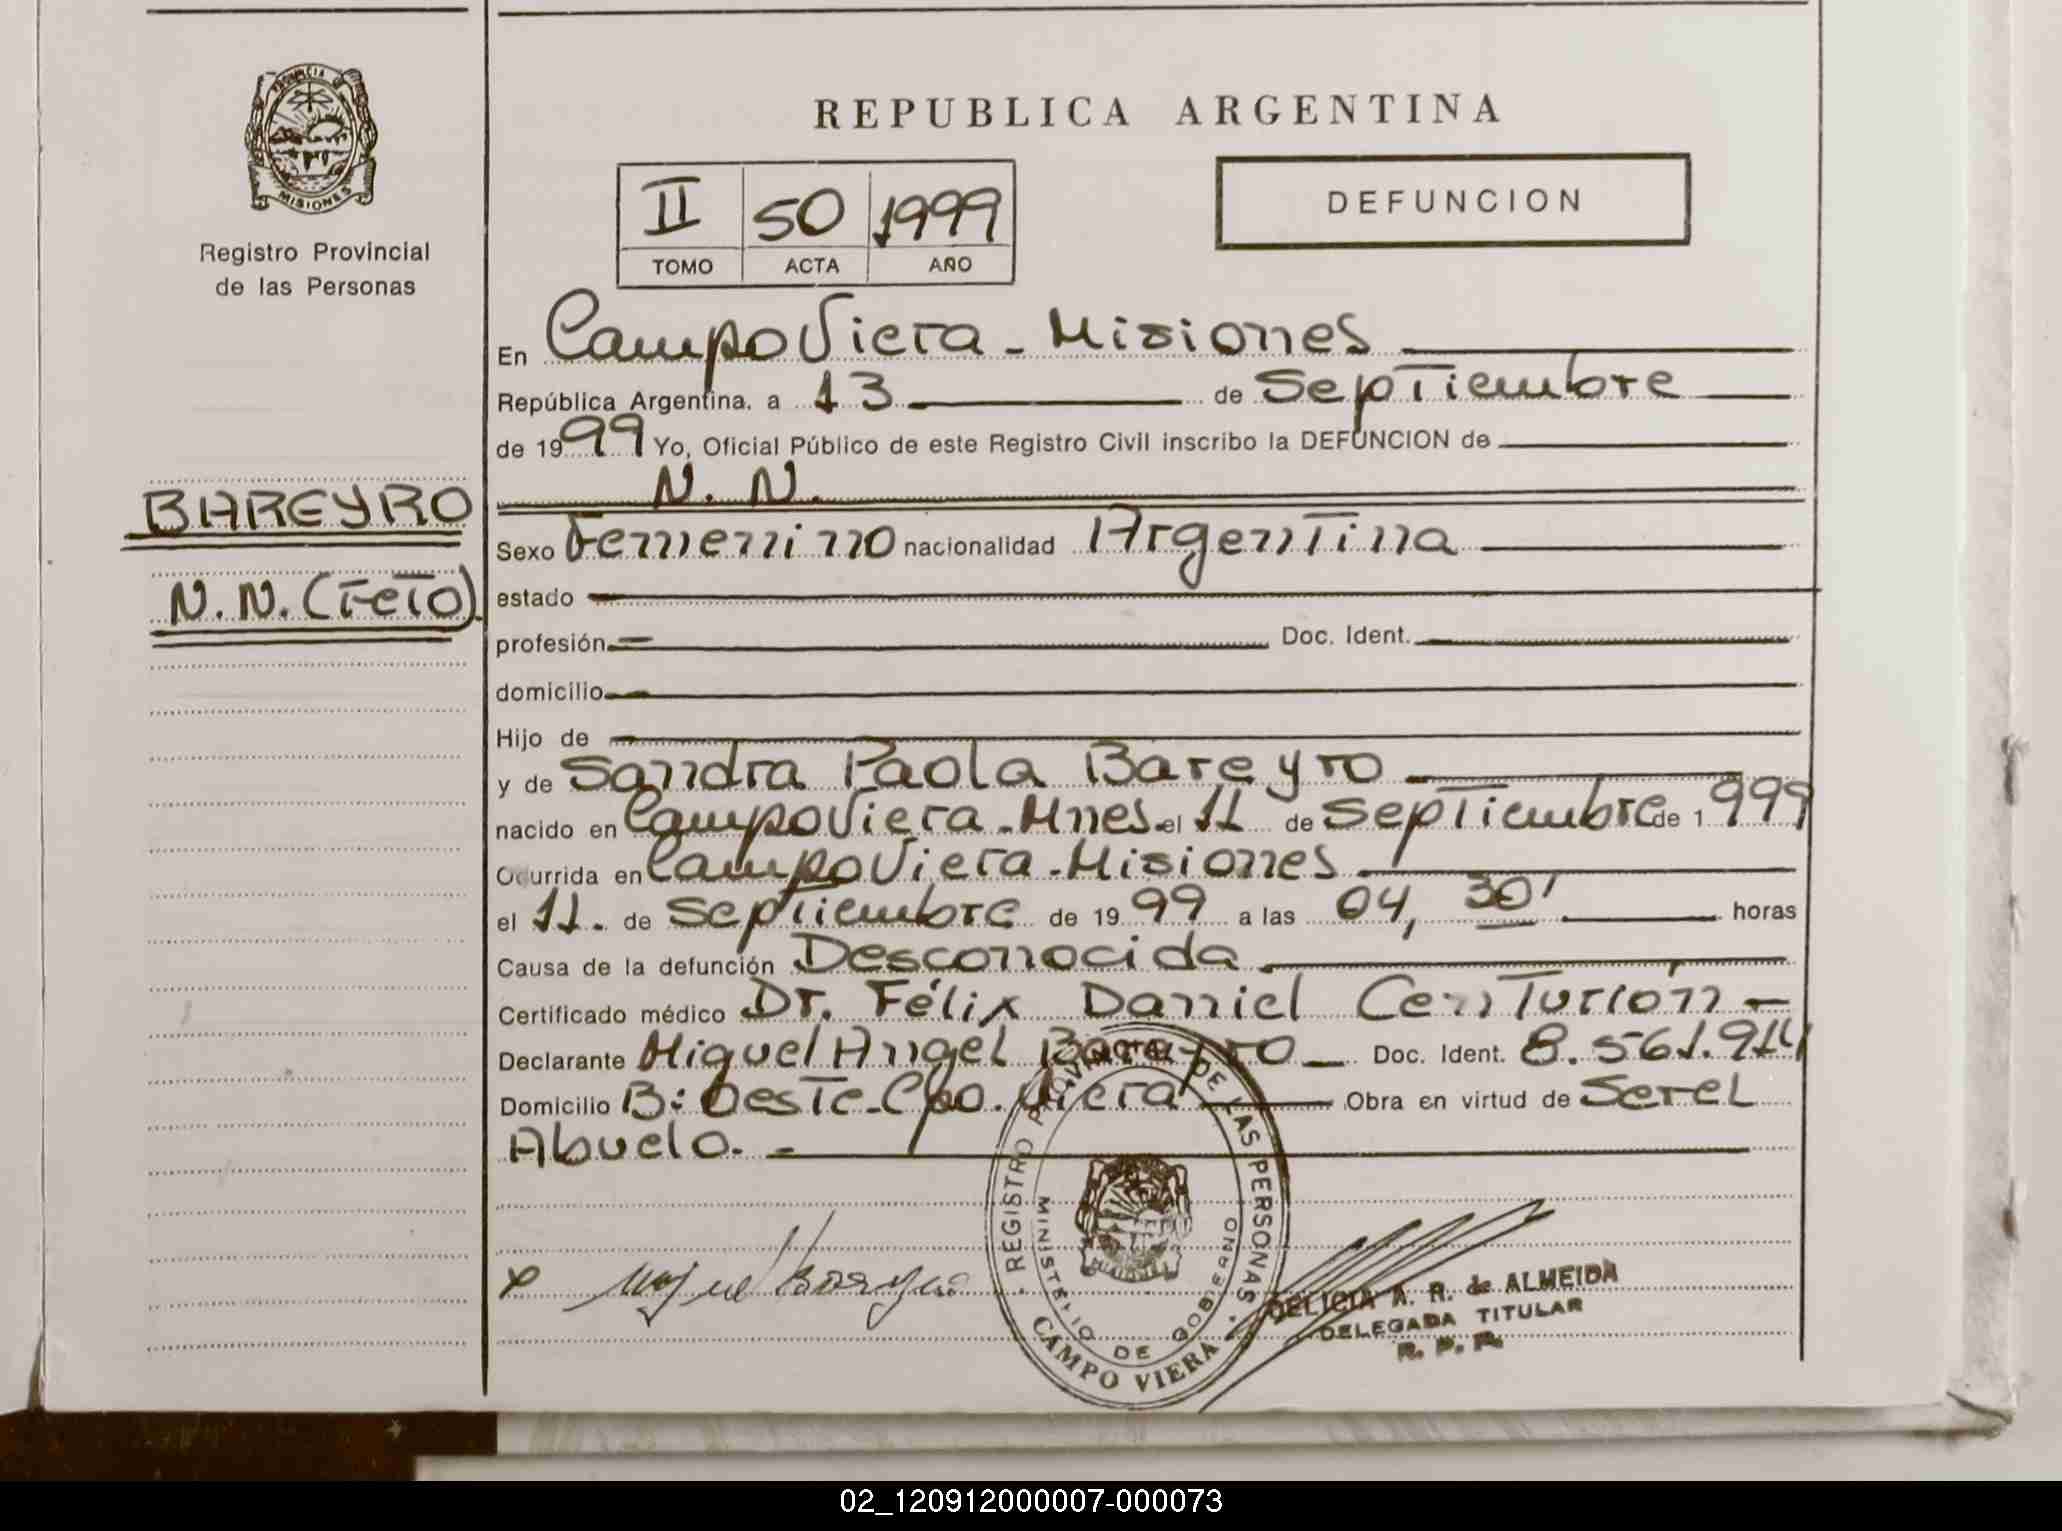 PROVINCIA DE
MISIONES
Registro Provincial
de las Personas
BAREYRO
N.N. (FETO)
REPUBLICA ARGENTINA
II 50 1999
TOMO ACTA AÑO
DEFUNCION
En Campo Viera - Misiones
República Argentina, a 13 de Septiembre
de 1999 Yo, Oficial Público de este Registro Civil inscribo la DEFUNCION de
N. N.
Sexo Femenino nacionalidad Argentina
estado
profesión Doc. Ident.
domicilio
Hijo de
y de Sandra Paola Bareyro
nacido en Campo Viera - Mnes. el 11 de Septiembre de 1999
Ocurrida en Campo Viera - Misiones
el 11. de Septiembre de 1999 a las 04, 30' horas
Causa de la defunción Desconocida
Certificado médico Dr. Félix Daniel Centurión -
Declarante Miguel Angel Bareyro Doc. Ident. 8.561.914
Domicilio B: Oeste - Cpo. Viera Obra en virtud de Ser el
Abuelo. -
REGISTRO PROVINCIAL DE LAS PERSONAS
MINISTERIO DE GOBIERNO
CAMPO VIERA
x Miguel Bareyro
DELICIA A. R. de ALMEIDA
DELEGADA TITULAR
R. P. P.
02_120912000007-000073